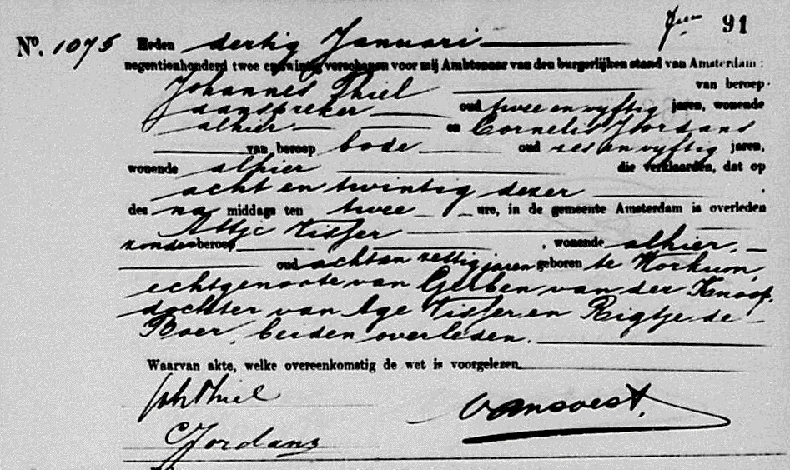 91
No. 1075 Heden dertig Januari
negentienhonderd twee en twintig verschenen voor mij Ambtenaar van den burgerlijken stand van Amsterdam:
Johannes Thiel van beroep
aanspreker oud twee en vyftig jaren, wonende
alhier en Cornelis Jordans
van beroep bode oud zes en vyftig jaren,
wonende alhier die verklaarden, dat op
acht en twintig dezer
des na middags ten twee ure, in de gemeente Amsterdam is overleden
Attje Visser
zonder beroep wonende alhier,
oud achten zestig jaren geboren te Workum,
echtgenoote van Gerben van der Knoop,
dochter van Age Visser en Rigtje de
Boer, beiden overleden.
Waarvan akte, welke overeenkomstig de wet is voorgelezen
Joh Thiel
C Jordans